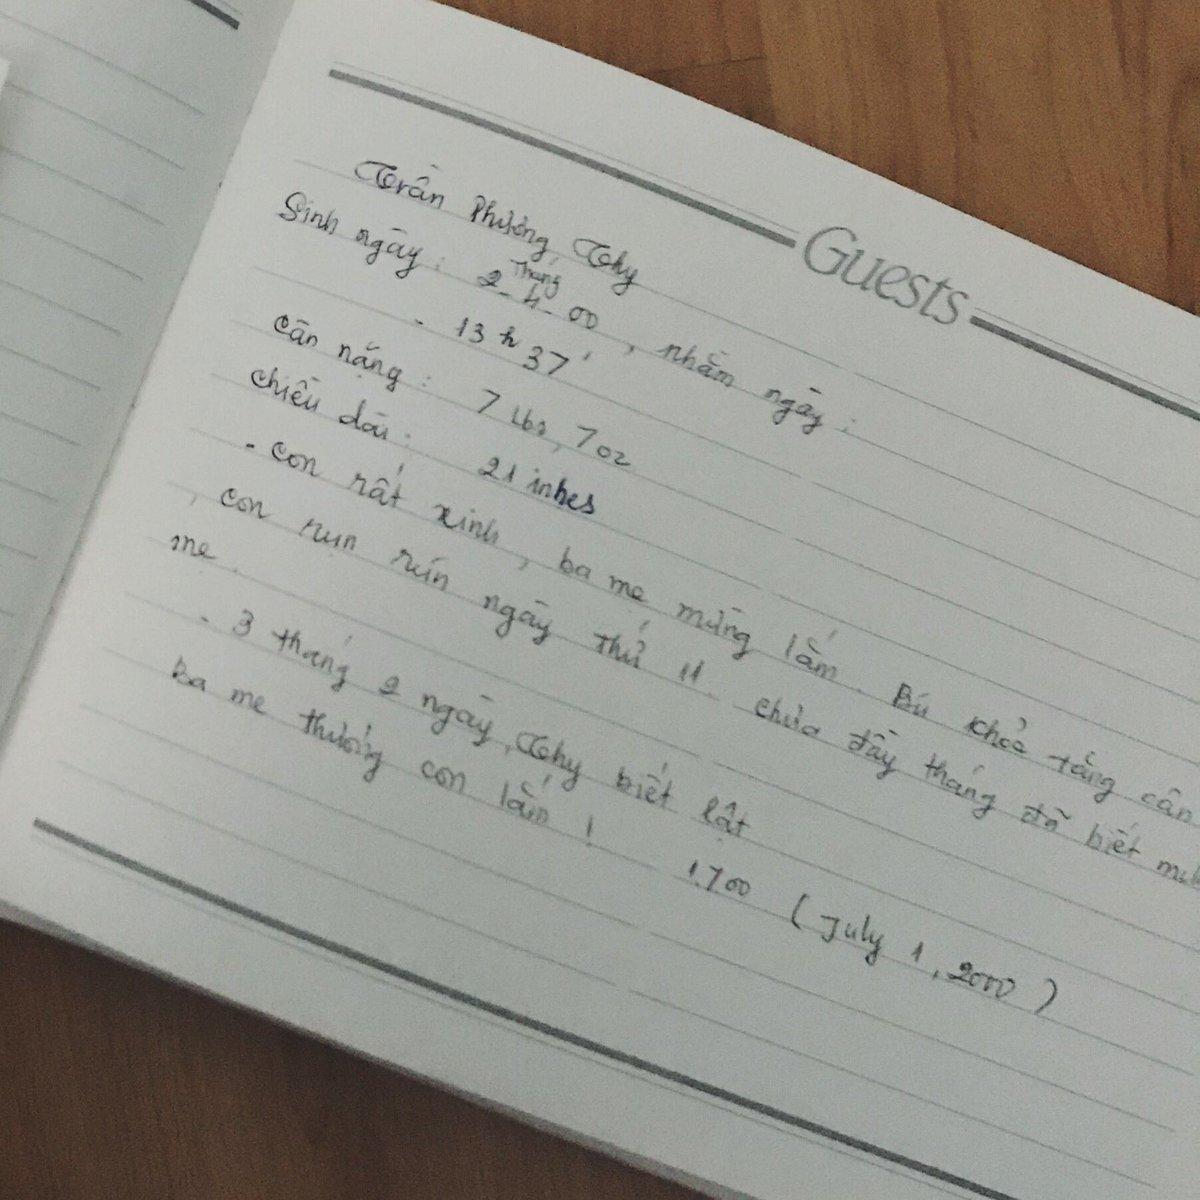 Guests
Trần Phương Thy
Sinh ngày : 2 - 4 - 00 , nhằm ngày :
Tháng
- 13 h 37'
Cân nặng : 7 lbs, 7 oz
Chiều dài : 21 inhes
- Con rất xinh, ba mẹ mừng lắm. Bú khỏe tăng cân
, con rụn rún ngày thứ 11. Chưa đầy tháng đã biết
mẹ.
- 3 tháng 2 ngày, Thy biết lật
Ba mẹ thương con lắm !
1.7.00 ( July 1, 2000 )